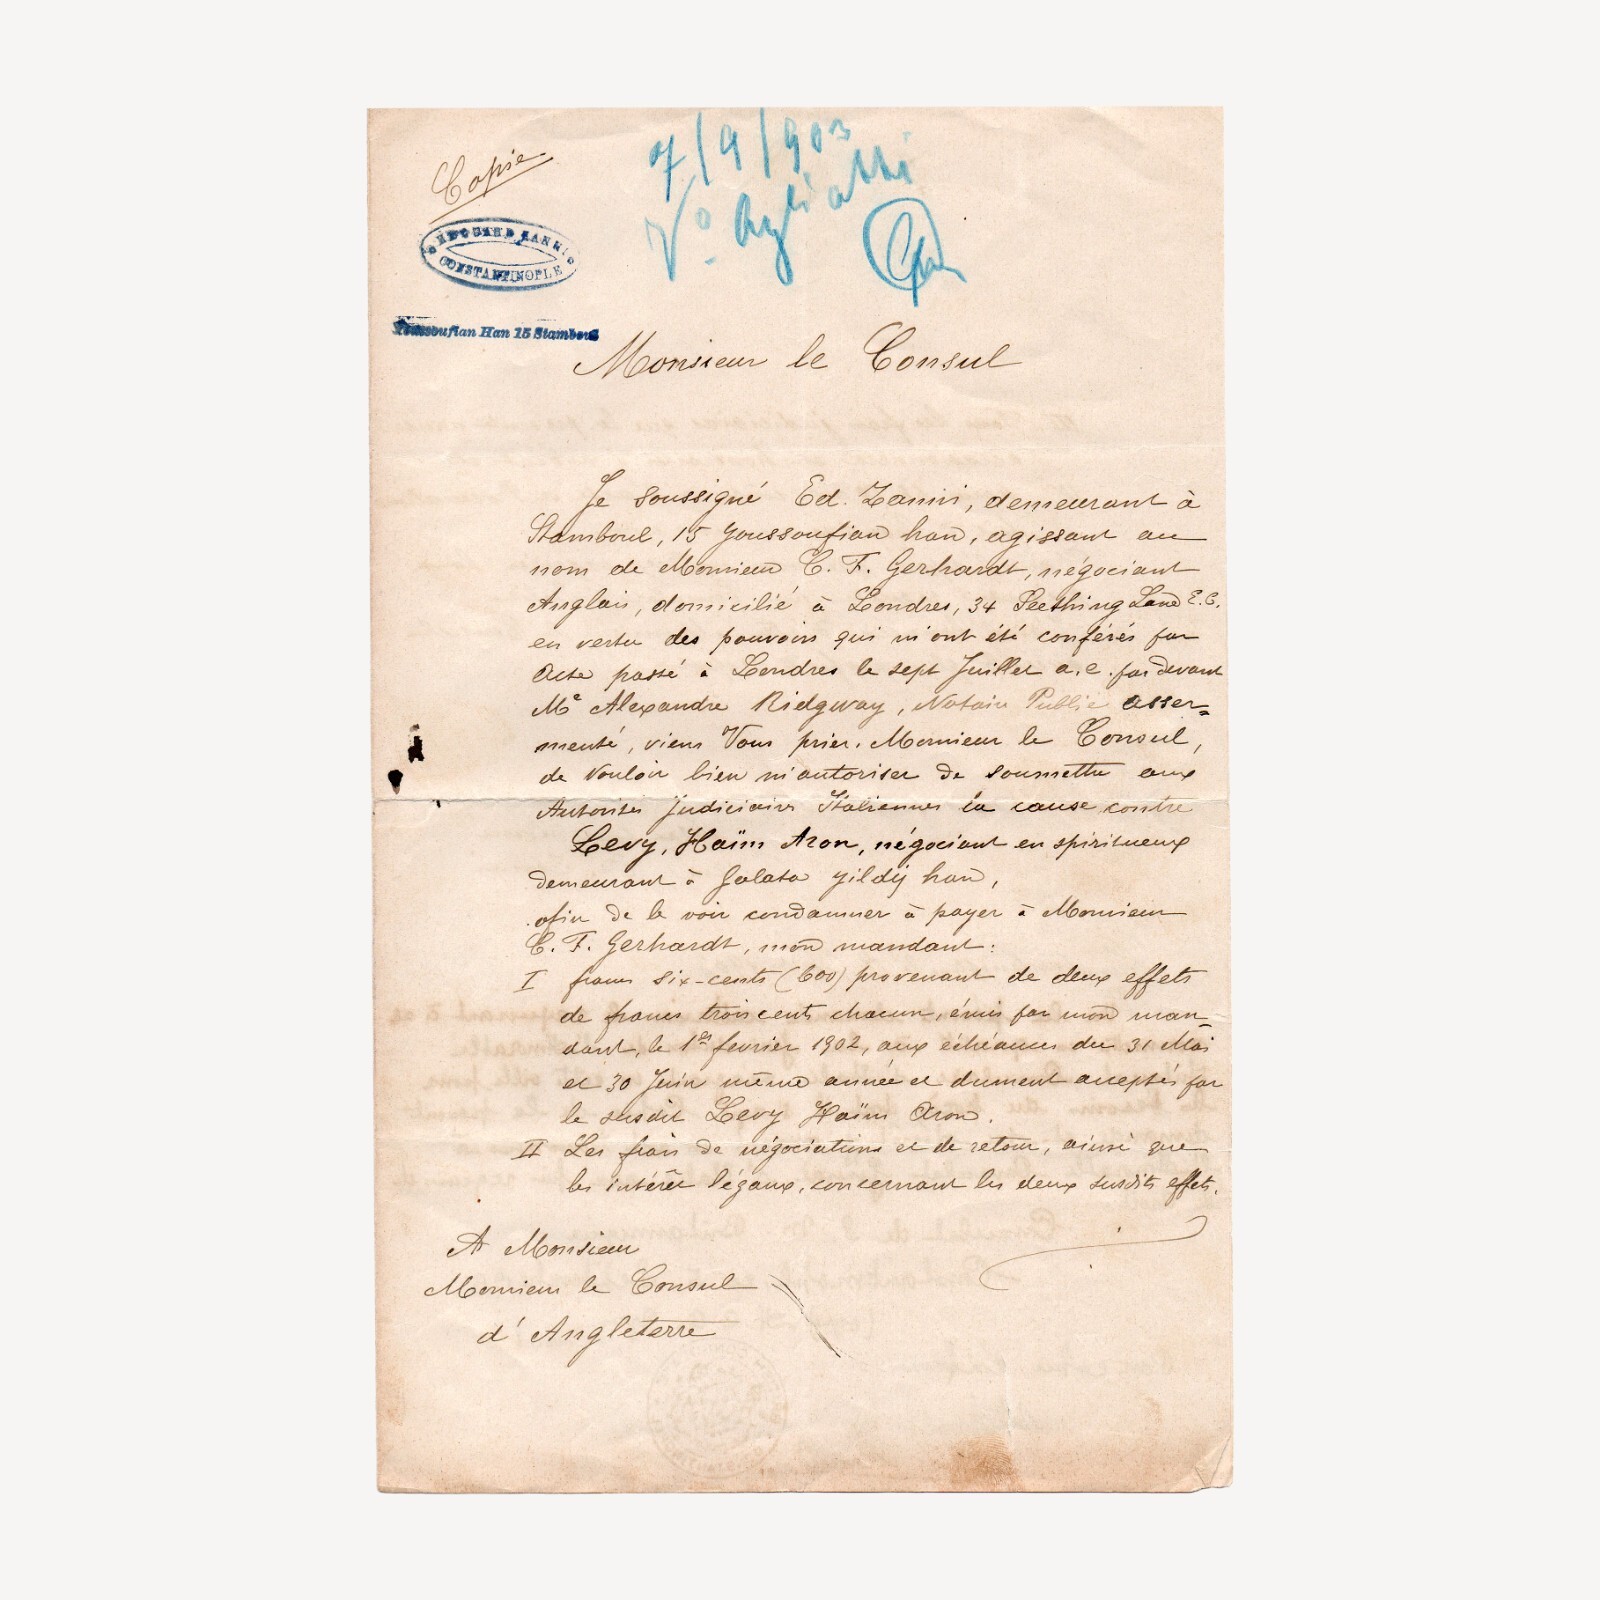 Copie
7/9/903
Vº Agliatti
EDOUARD ZANNI
CONSTANTINOPLE
Youssoufian Han 15 Stamboul
Monsieur le Consul
Je soussigné Ed. Zanni, demeurant à
Stamboul, 15 Youssoufian han, agissant au
nom de Monsieur C. F. Gerhardt, négociant
Anglais, domicilié à Londres, 34 Seething Land E.C.
en vertu des pouvoirs qui m'ont été conférés par
Acte passé à Londres le sept Juillet a.c. par devant
Me Alexandre Ridgway, Notair Public asser=
menté, viens Vous prier, Monsieur le Consul,
de vouloir bien m'autoriser de soumettre aux
Autorités judiciaires Italiennes la cause contre
Levy, Haïm Aron, négociant en spiritueux
demeurant à Galata Yildij han,
afin de le voir condamner à payer à Monsieur
C. F. Gerhardt, mon mandant:
I francs six-cents (600) provenant de deux effets
de francs trois cents chacun, émis par mon man=
dant, le 1er fevrier 1902, aux échéances du 31 Mai
et 30 Juin même année et dument acceptés par
le susdit Levy Haïm Aron.
II Les frais de négociations et de retour, ainsi que
les intérêt légaux, concernant les deux susdits effets.
A Monsieur
Monsieur le Consul
d'Angleterre